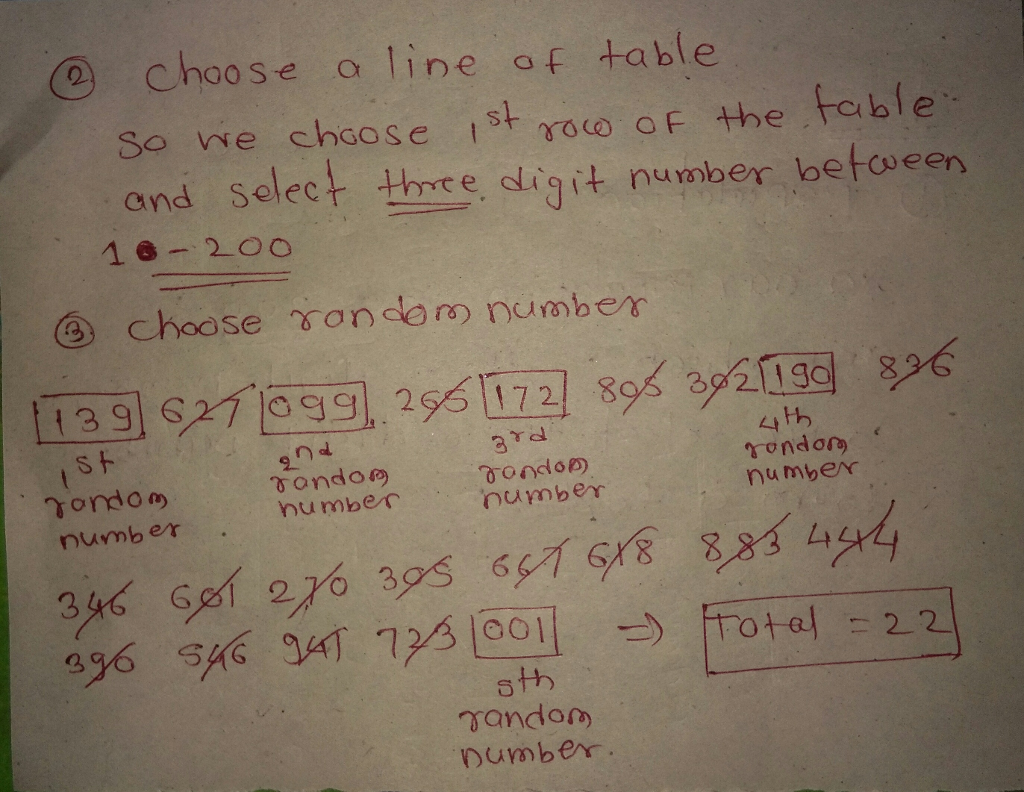 ② Choose a line of table
So we choose 1st row of the table
and select three digit number between
1 - 200
③ choose random number
139 627 099 266 172 805 392 190 836
1st random number
2nd random number
3rd random number
4th random number
346 601 270 305 667 618 883 444
396 546 941 723 001 ⇒ Total = 22
5th
random
number.